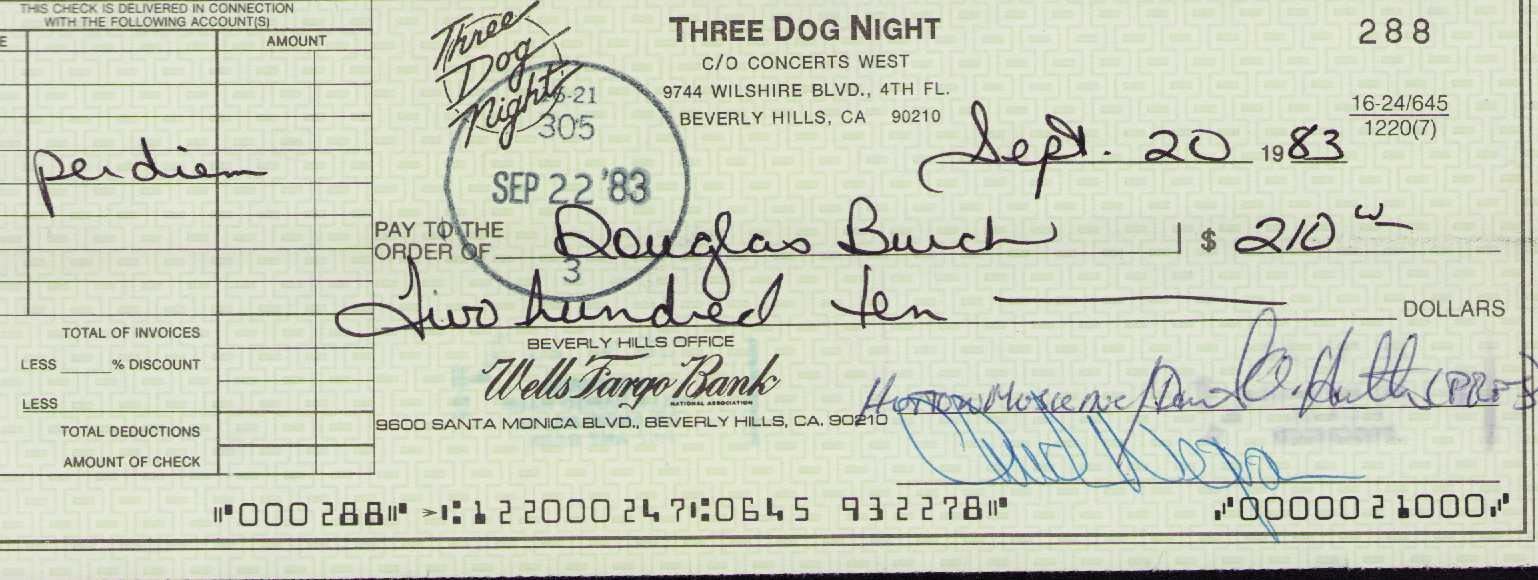 THIS CHECK IS DELIVERED IN CONNECTION
WITH THE FOLLOWING ACCOUNT(S)
E
AMOUNT
per diem
TOTAL OF INVOICES
LESS % DISCOUNT
LESS
TOTAL DEDUCTIONS
AMOUNT OF CHECK
Three
Dog
Night
THREE DOG NIGHT
C/O CONCERTS WEST
9744 WILSHIRE BLVD., 4TH FL.
BEVERLY HILLS, CA 90210
288
16-24/645
1220(7)
-21
305
SEP 22 '83
3
Sept. 20 1983
PAY TO THE
ORDER OF Douglas Burch $ 210
Two hundred ten DOLLARS
BEVERLY HILLS OFFICE
Wells Fargo Bank
NATIONAL ASSOCIATION
9600 SANTA MONICA BLVD., BEVERLY HILLS, CA. 90210
000288 122000247 0645 932278 0000021000